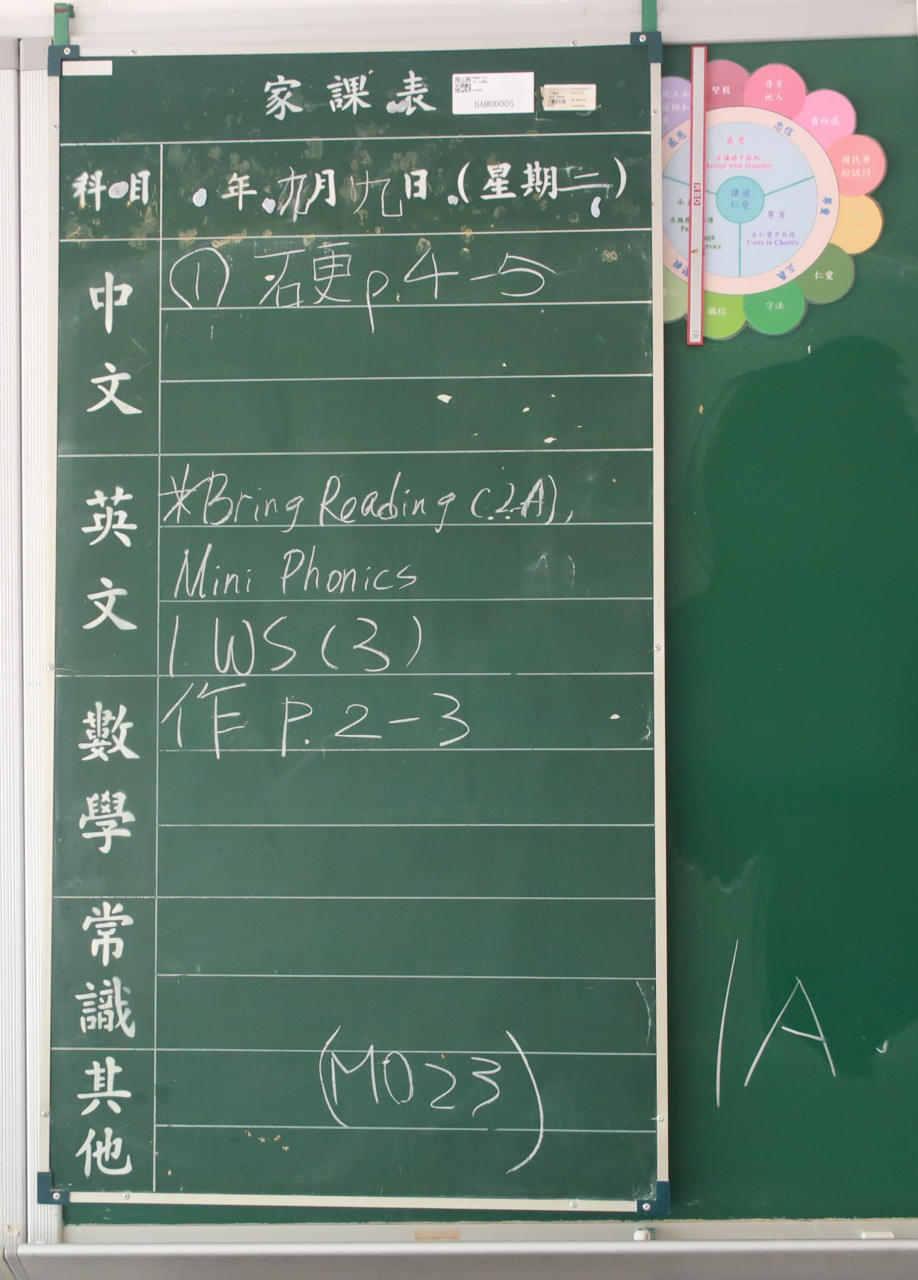 家課表
HAM00005
科目 年九月九日(星期二)
中文
① 硬 p.4-5
英文
*Bring Reading (2A),
Mini Phonics
1. WS (3)
數學
作 P.2-3
常識
其他
(M023)
1A
堅毅
尊重他人
責任感
國民身份認同
仁愛
守法
誠信
感恩
Accept with Humility
謙遜仁愛
尊重
在仁愛中共存
Unite in Charity